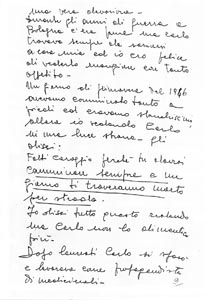 una vera
durante gli anni di guerra a
Bologna c'era fame ma Carlo
trovava sempre da
a casa mia ed io ero felice
di vederlo mangiare con tanto
appetito.
Un giorno di primavera del 1946
avevamo camminato tanto a
piedi ed eravamo stanchissimi
allora io vedendo Carlo
in una luce strana gli
dissi:
Fatti coraggio perché tu
camminare sempre e un
giorno ti troveranno morto
per strada.
Io dissi tutto questo
ma Carlo non lo dimenticò
più.
Dopo laureato Carlo si sposò
e lavorava come propagandista
di medicinali.